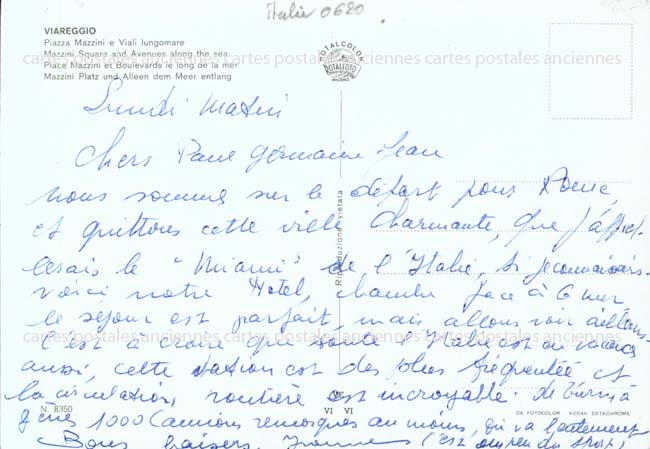 Italie 0620
VIAREGGIO
Piazza Mazzini e Viali lungomare
Mazzini Square and Avenues along the sea
Place Mazzini et Boulevards le long de la mer
Mazzini Platz und Alleen dem Meer entlang
TOTALCOLOR
DOTALFOTO
MILANO
cartes postales anciennes cartes postales anciennes cartes postales anciennes
Lundi Matin
Chers Paul Germaine Jean
nous sommes sur le départ pour Rome,
et quittons cette ville charmante, que j'appel-
lerais le "Miami" de l'Italie, si je connaissais.
voici notre Hotel, chambre face à la mer
le séjour est parfait, mais allons voir ailleurs.
cartes postales anciennes cartes postales anciennes cartes postales anciennes
C'est à croire que toute l'Italie est en vacances
aussi, cette station est des plus fréquentée et
la circulation routière est incroyable. de Turin à
gènes 1000 Camions remorques au moins, on va lentement
Bons baisers, (c'est un peu du sport)
Riproduzione vietata
N. 8350
VI VI
DA FOTOCOLOR KODAK EKTACHROME